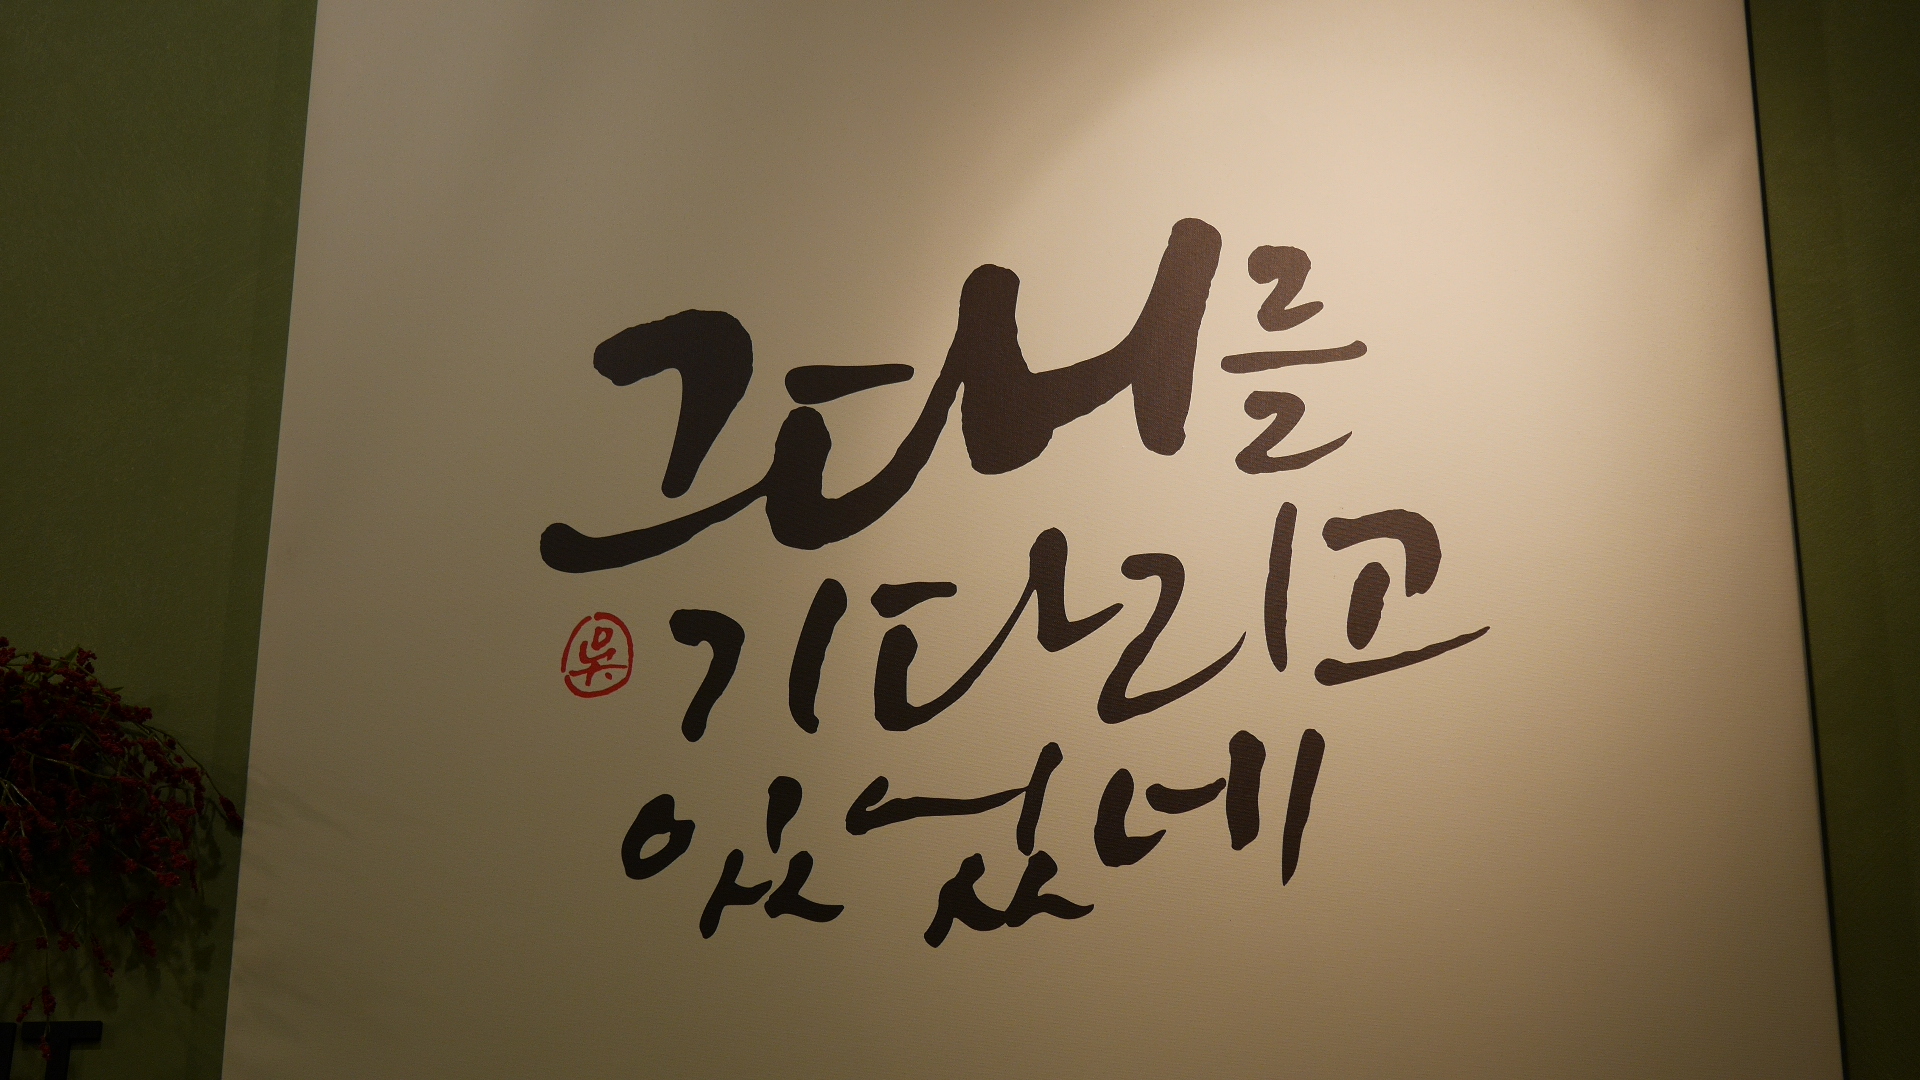 그대를
吳 기다리고
있었네